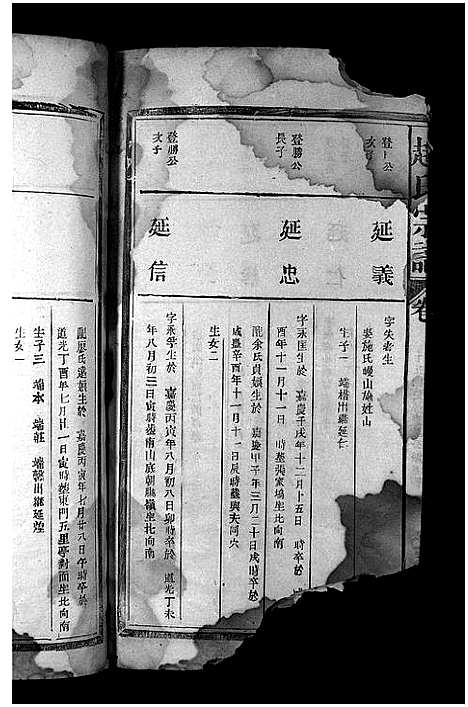 趙氏宗譜
卷
登 公
次子
延義
字 生
娶施氏嶁山施姓山
生子一 端楷出繼延仁
登勝公
長子
延忠
字永匡生於 嘉慶 戌年十二月十五日 時卒於
酉年十一月十一日 時塟張家塢坐北向南
配余氏貞順生於 嘉慶甲子年三月二十日戌時卒於
咸豐辛酉年十一月十二日辰時塟與夫同穴
生女二
登勝公
次子
延信
字永孚生於 嘉慶丙寅年八月初八日卯時卒於 道光丁未
年八月初三日寅時塟南山底朝 嶺坐北向南
配 氏 順生於 嘉慶丙寅年七月廿八日午時卒於
道光丁酉年七月廿一日寅時塟東門五里亭對面坐北向南
生子三 端本 端莊 端 出繼延煌
生女一